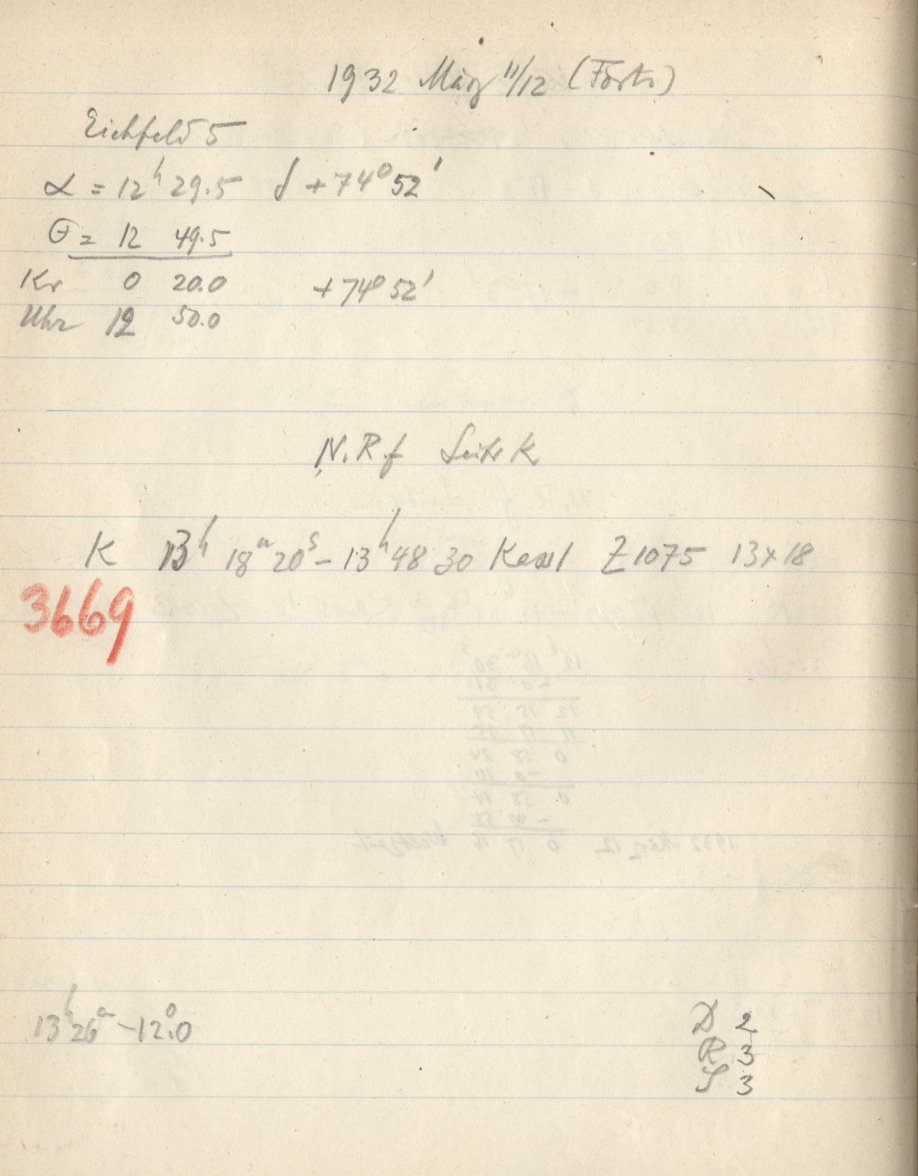 1932 März 11/12 (Forts.)
Eichfeld 5
α = 12h 29.5 δ +74° 52'
Θ = 12 49.5
Kr 0 20.0 +74° 52'
Uhr 12 50.0
N.R.f Seite K
K 13h 18m 20s – 13h 48 30 Kassl Z 1075 13x18
3669
13h 26m –12°.0
D 2
R 3
S 3